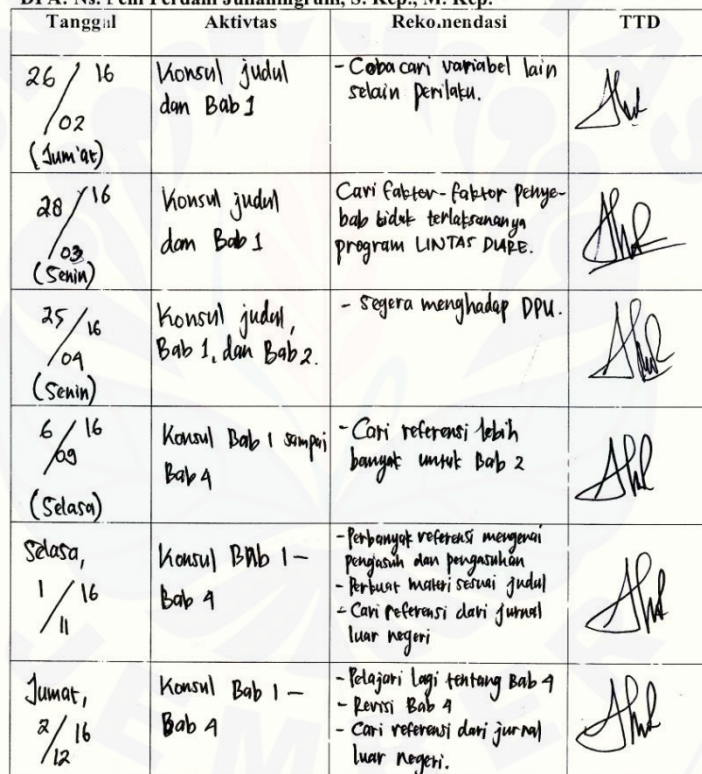 DPA: Ns. Peni Perdani Juliningrum, S. Kep., M. Kep.
Tanggal Aktivtas Rekomendasi TTD
26/02 16
(Jum'at)
Konsul judul
dan Bab 1
- Coba cari variabel lain
selain perilaku.
28/03 16
(Senin)
Konsul judul
dan Bab 1
Cari faktor-faktor penye-
bab tidak terlaksananya
program LINTAS DIARE.
25/04 16
(Senin)
Konsul judul,
Bab 1, dan Bab 2.
- Segera menghadap DPU.
6/09 16
(Selasa)
Konsul Bab 1 sampai
Bab 4
- Cari referensi lebih
banyak untuk Bab 2
Selasa,
1/11 16
Konsul Bab 1 –
Bab 4
- Perbanyak referensi mengenai
pengasuh dan pengasuhan
- Perkuat materi sesuai judul
- Cari referensi dari jurnal
luar negeri
Jumat,
2/12 16
Konsul Bab 1 –
Bab 4
- Pelajari lagi tentang Bab 4
- Revisi Bab 4
- Cari referensi dari jurnal
luar negeri.